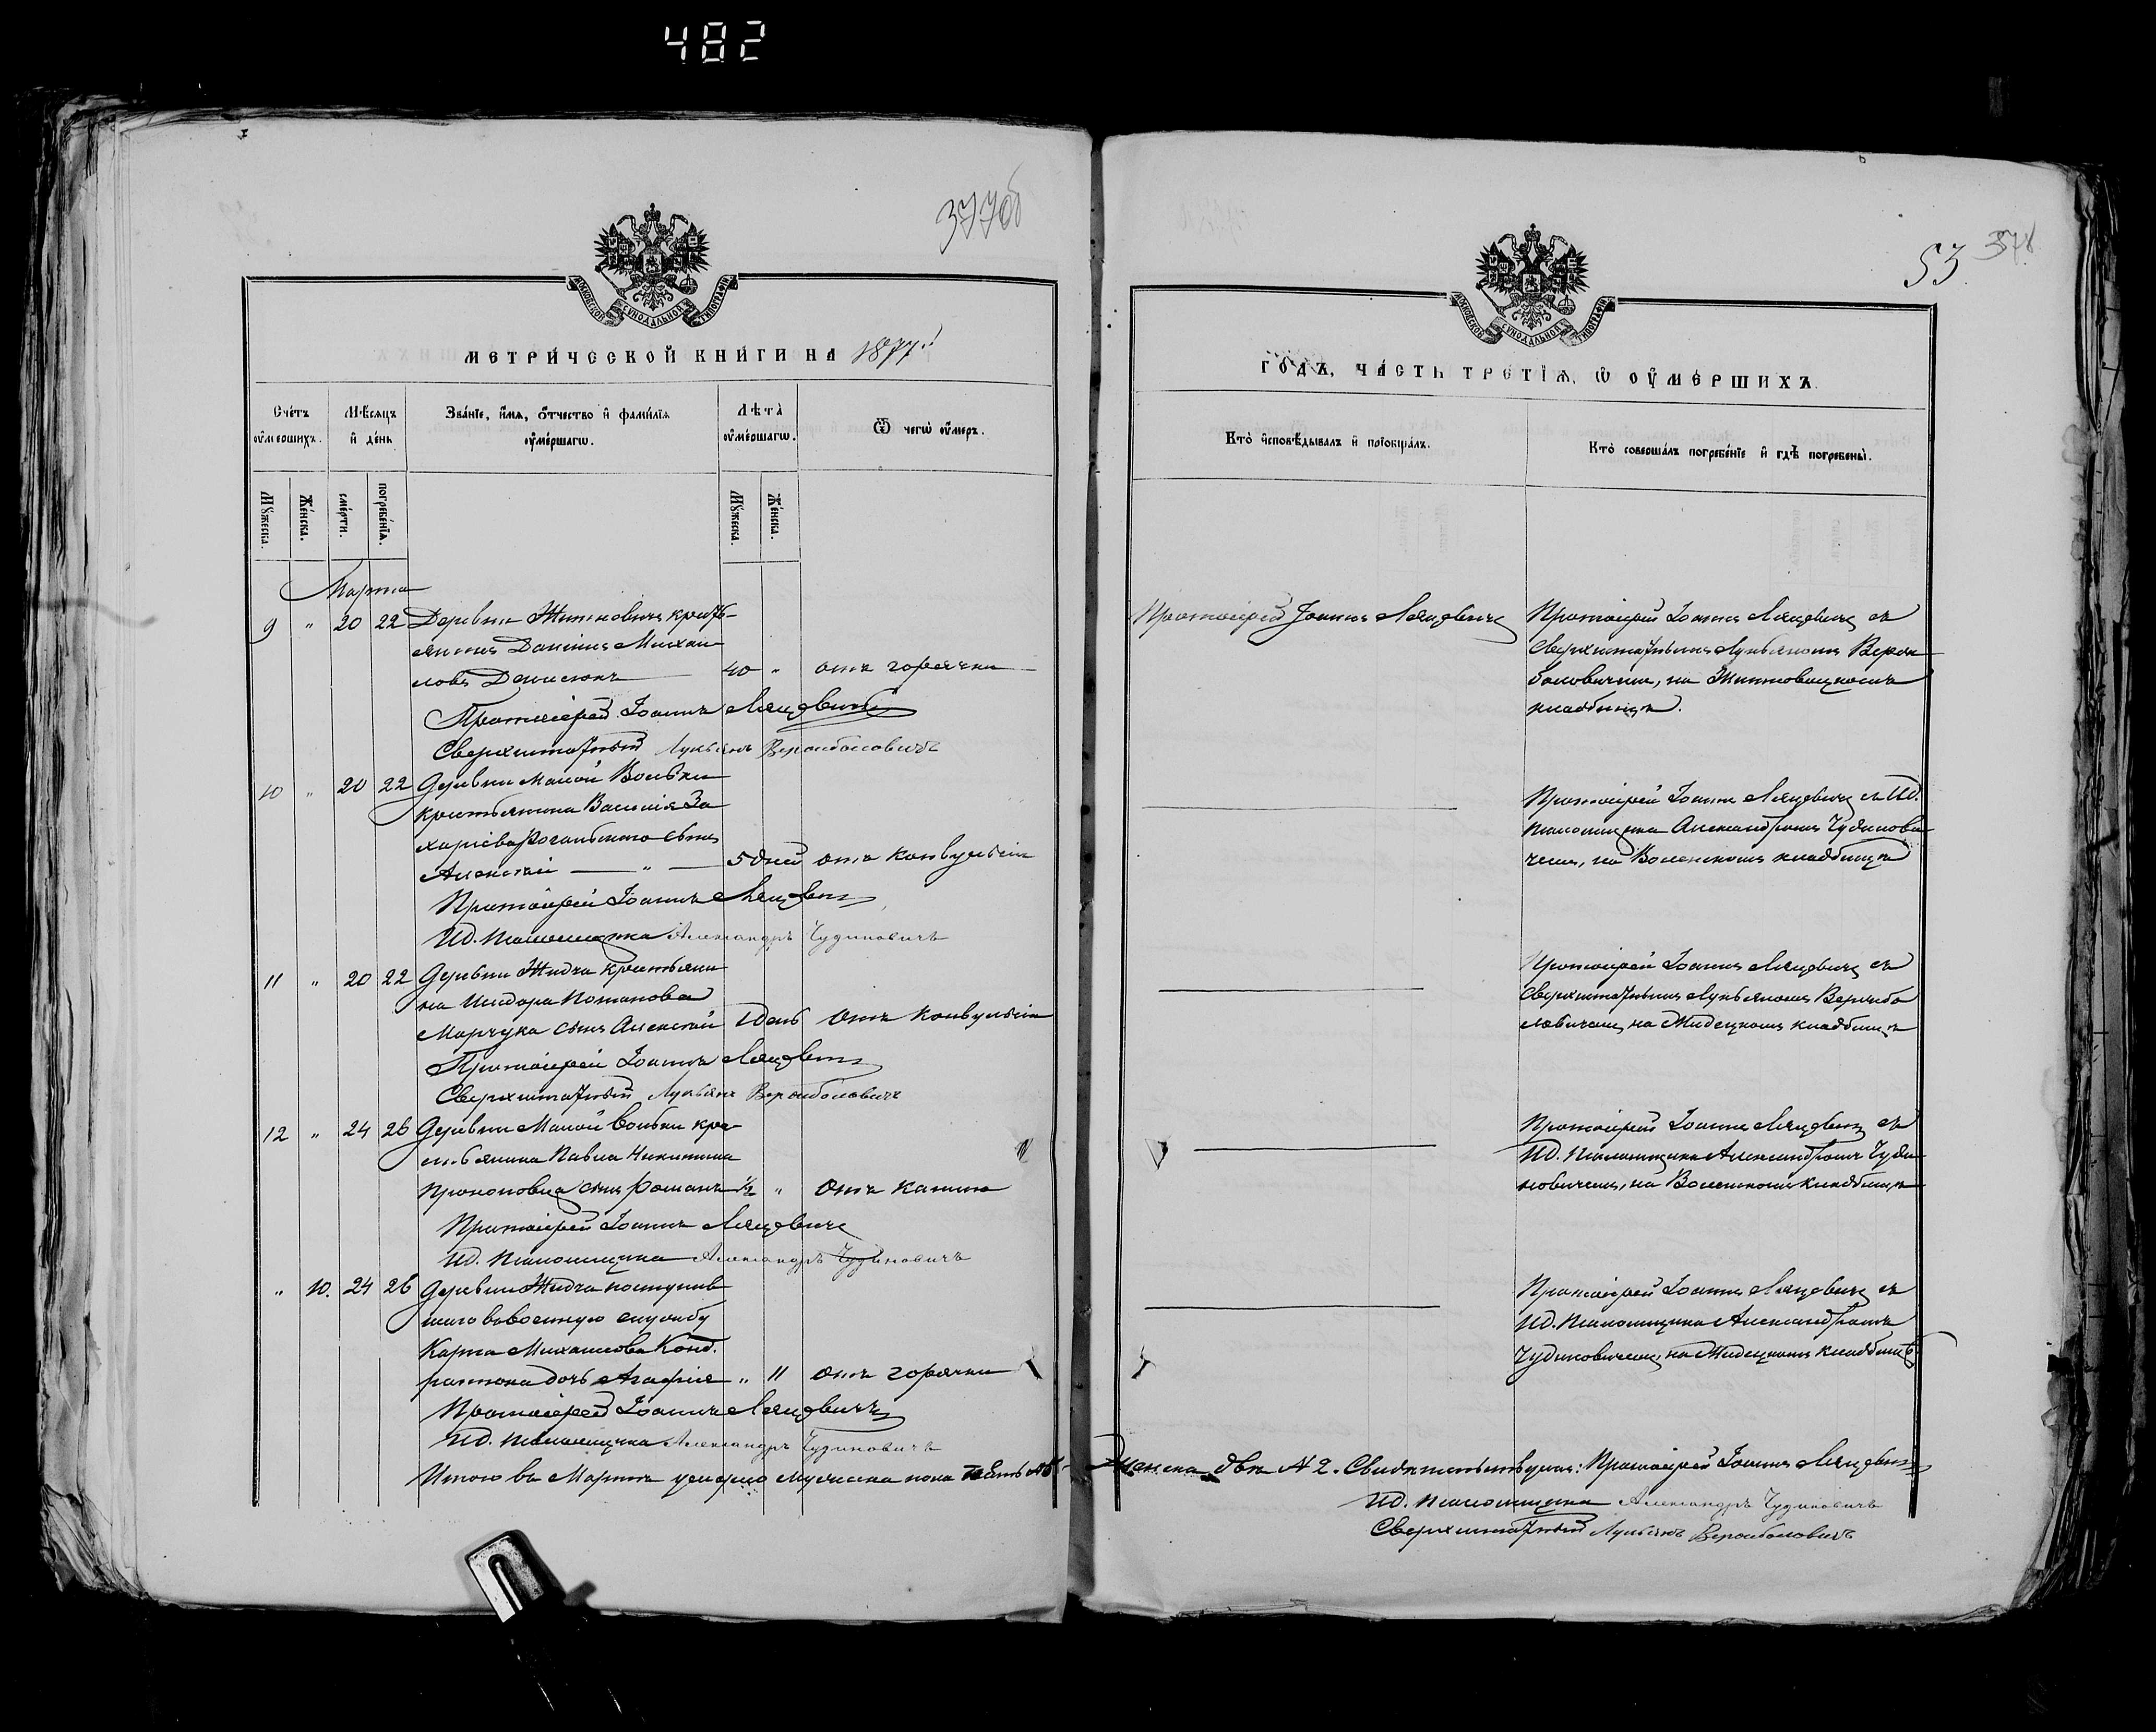 482
377об
МОСКОВСКОЙ СѴНОДАЛЬНОЙ ТИПОГРАФІИ
МЕТРИЧЕСКОЙ КНИГИ НА 1877й
Счетъ умершихъ.
Мѣсяцъ и день
Званіе, имя, отчество и фамилія умершаго.
Лѣта умершаго.
Ѿ чегѡ умеръ.
Мужеска.
Женска.
смерти.
погребенія.
Мужеска.
Женска.
Марта
9 " 20 22 Деревни Житновичъ кресть-
янинъ Даніилъ Михаи
ловъ Денисюкъ 40 " отъ горячки
Протоіерей Іоаннъ Ляцевичъ
Сверхштатный Лукьянъ
10 " 20 22 Деревни Малой Вольки
крестьянина Василія За
харіева сынъ
Алексѣй — " — 5 дней отъ конвульсіи
Протоіерей Іоаннъ Ляцевичъ
Ид. псаломщика Александръ Чудиновичъ
11 " 20 22 Деревни Жидча крестьяни
на Исидора Потапова
Марчука сынъ Алексѣй 1 день отъ конвульсіи
Протоіерей Іоаннъ Ляцевичъ
Сверхштатный Лукьянъ
12 " 24 26 Деревни Малой Вольки кре-
стьянина Павла Никитина
Прокоповца сынъ Романъ 1/2 " отъ кашлю
Протоіерей Іоаннъ Ляцевичъ
Ид. псаломщика Александръ Чудиновичъ
" 10. 24 26 Деревни Жидча поступив
шаго въ военную службу
Карпа Михайлова Конд.
ратюка дочь Агафія " 11 отъ горячки
Протоіерей Іоаннъ Ляцевичъ
Ид. псаломщика Александръ Чудиновичъ
Итого въ Мартѣ умерло мужеска пола
53 378
МОСКОВСКОЙ СѴНОДАЛЬНОЙ ТИПОГРАФІИ
ГОДЪ, ЧАСТЬ ТРЕТІЯ, Ѡ УМЕРШИХЪ
Кто исповѣдывалъ и пріобщалъ.
Кто совершалъ погребеніе и гдѣ погребены.
Протоіерей Іоаннъ Ляцевичъ
Протоіерей Іоаннъ Ляцевичъ съ
Сверхштатнымъ Лукьяномъ
на Житновицкомъ
кладбищѣ.
Протоіерей Іоаннъ Ляцевичъ съ Ид.
псаломщика Александромъ Чудинови
чемъ, на Волецкомъ кладбищѣ
Протоіерей Іоаннъ Ляцевичъ съ
Сверхштатнымъ Лукьяномъ
на Жидецкомъ кладбищѣ
Протоіерей Іоаннъ Ляцевичъ съ
Ид. псаломщика Александромъ Чуди
новичемъ, на Волецкомъ кладбищѣ
Протоіерей Іоаннъ Ляцевичъ съ
Ид. псаломщика Александромъ
Чудиновичемъ, на Жидецкомъ кладбищѣ
женска двѣ № 2. Свидѣтельствуемъ: Протоіерей Іоаннъ Ляцевичъ
Ид. псаломщика Александръ Чудиновичъ
Сверхштатный Лукьянъ